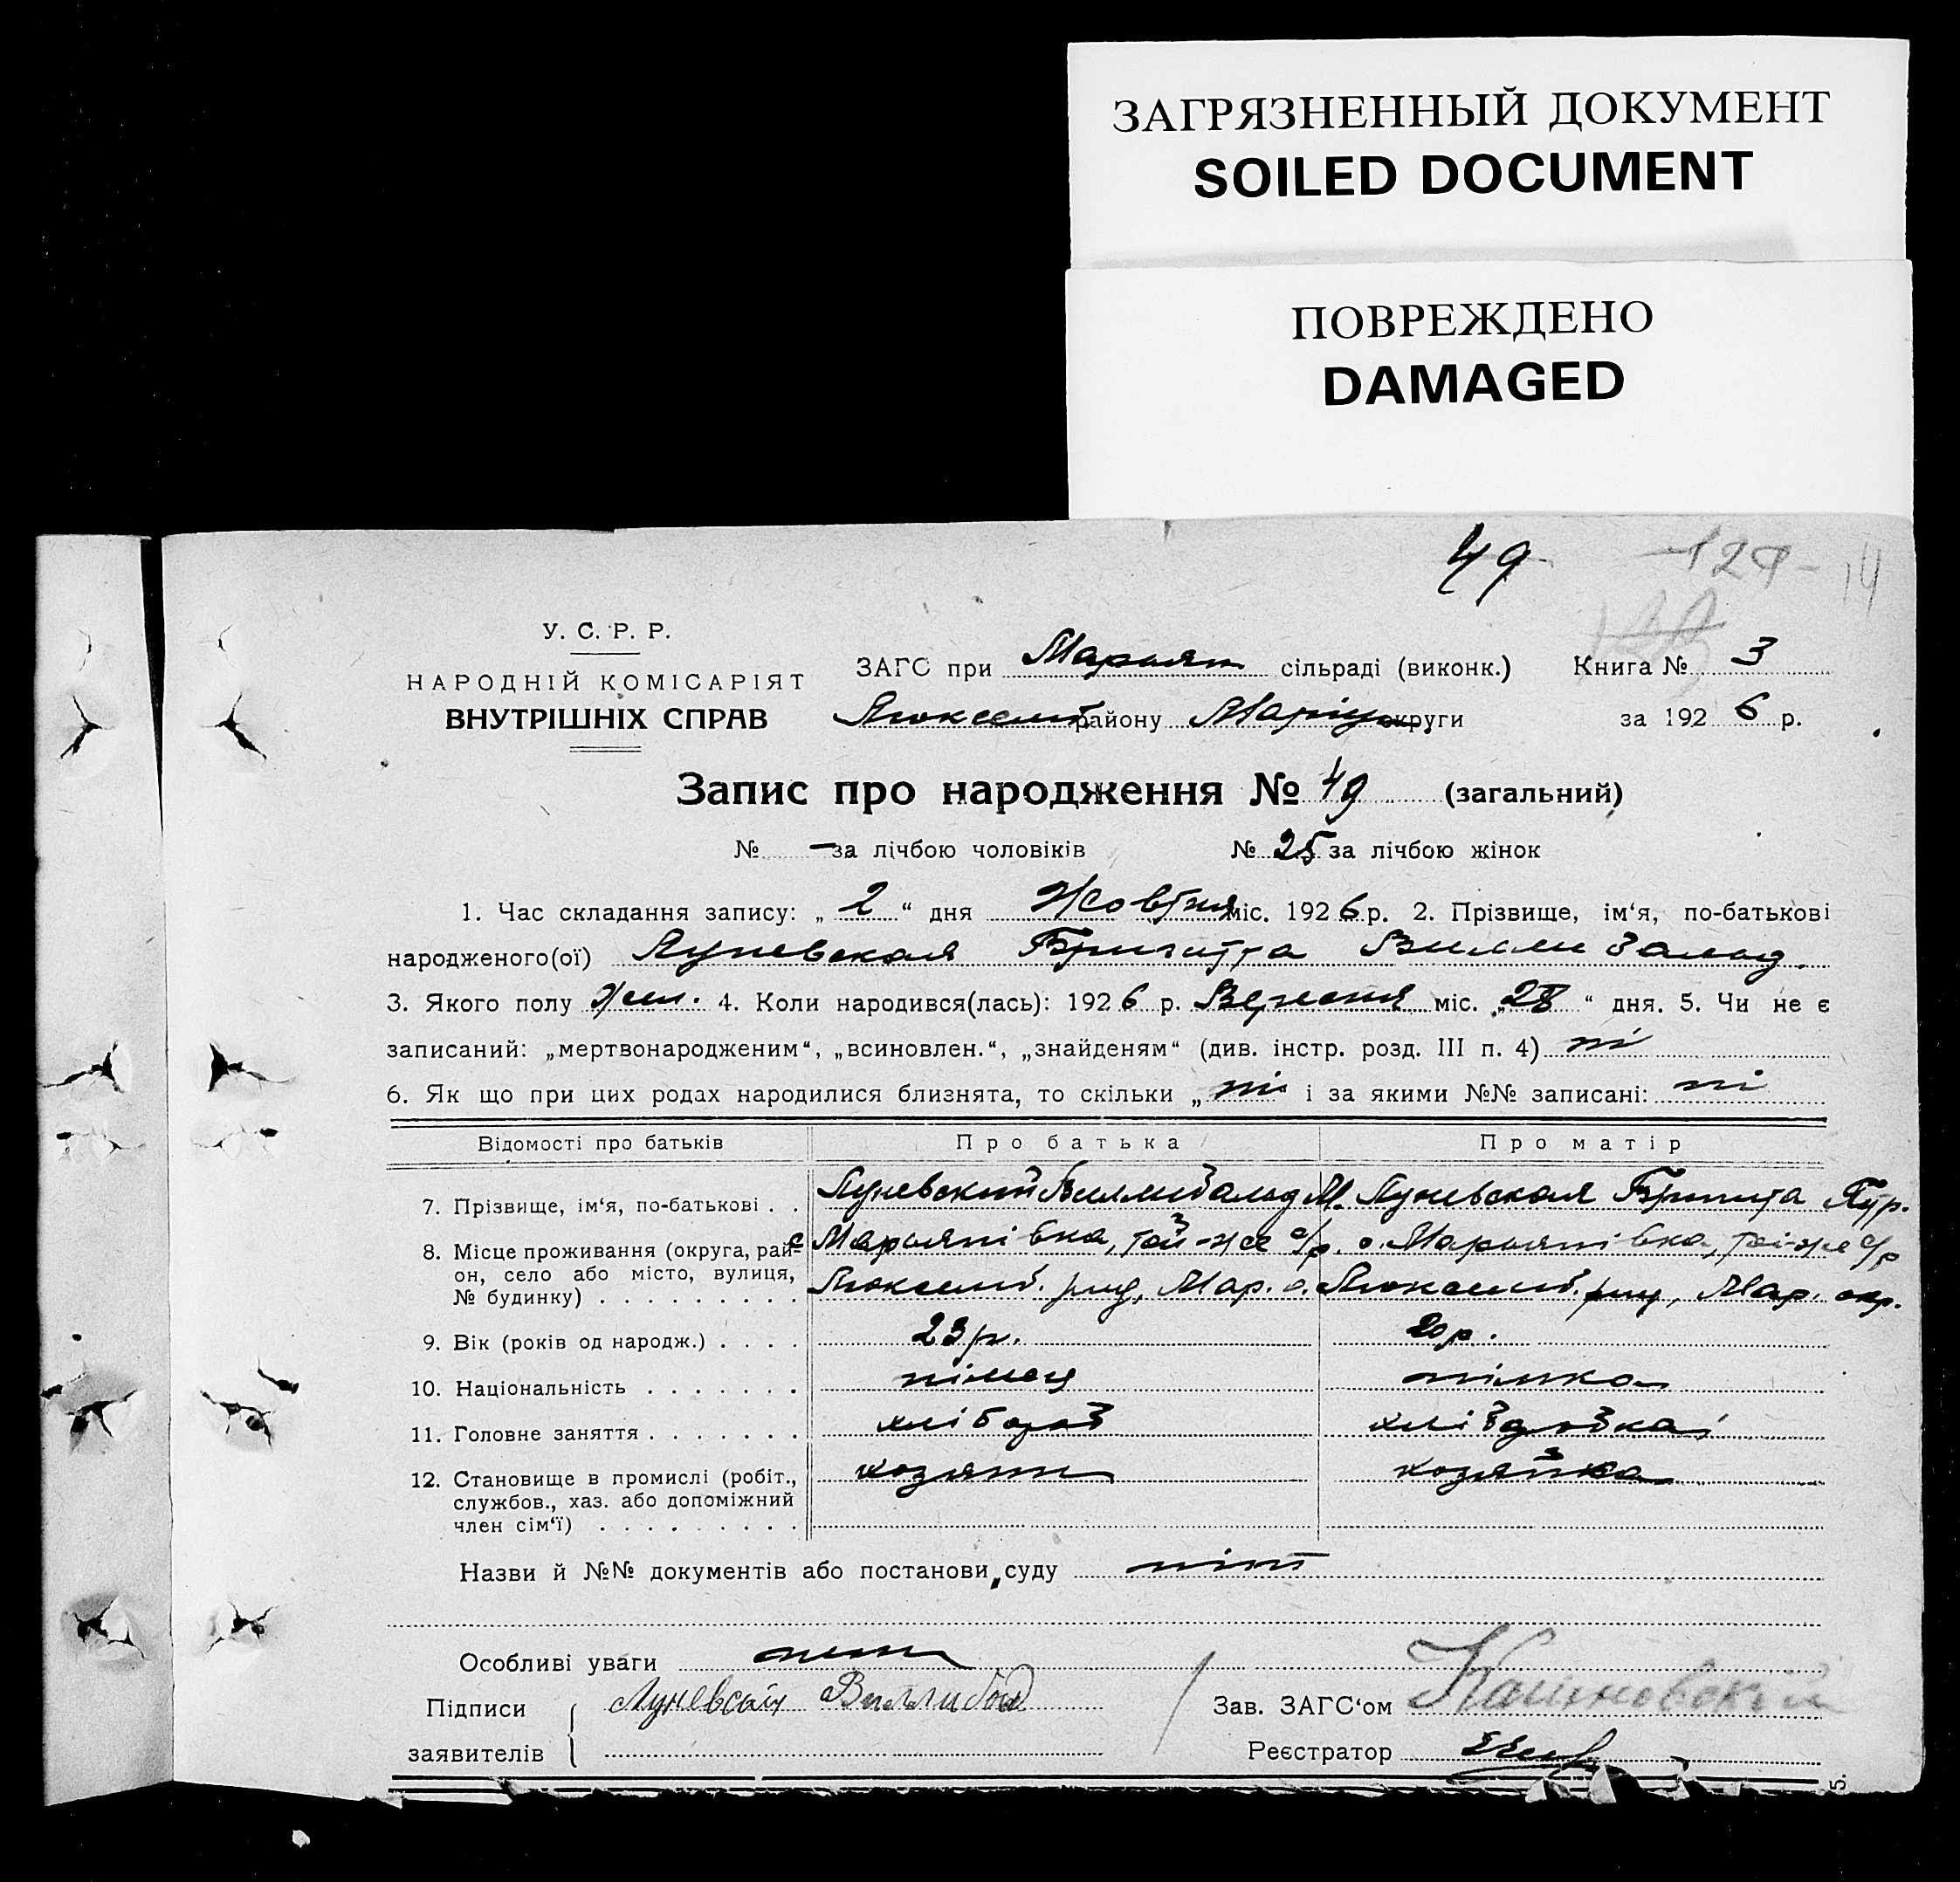 ЗАГРЯЗНЕННЫЙ ДОКУМЕНТ
SOILED DOCUMENT
ПОВРЕЖДЕНО
DAMAGED
49 14
У. С. Р. Р.
НАРОДНІЙ КОМІСАРІЯТ
ВНУТРІШНІХ СПРАВ
ЗАГС при Марьян сільраді (виконк.) Книга № 3
району Маріуп округи за 1926 р.
Запис про народження № 49 (загальний)
№ — за лічбою чоловіків № 25 за лічбою жінок
1. Час складання запису: „ 2 “ дня Жовтня міс. 1926 р. 2. Прізвище, ім‘я, по-батькові
народженого(ої) Луневская Бригитта
3. Якого полу жин. 4. Коли народився(лась): 1926 р. Вересня міс. „28 “ дня. 5. Чи не є
записаний: „мертвонародженим“, „всиновлен.“, „знайденям“ (див. інстр. розд. III п. 4) ні
6. Як що при цих родах народилися близнята, то скільки „ ні і за якими №№ записані: ні
Відомості про батьків Про батька Про матір
7. Прізвище, ім‘я, по-батькові . . Луневский Виллибальд М. Луневская
8. Місце проживання (округа, рай- с Марьянівка, той-же с/р. с. Марьянівка, тої-же с/р
он, село або місто, вулиця, Мар. о. Мар. окр.
№ будинку) . . . . . . . . .
9. Вік (років од народж.) . . . . 23 р. 20 р.
10. Національність . . . . . . . німець німка
11. Головне заняття . . . . . . . хлібороб хліборобка
12. Становище в промислі (робіт., хозяин хозяйка
службов., хаз. або допоміжний
член сім‘ї) . . . . . . . . .
Назви й №№ документів або постанови суду ніт
Особливі уваги
Підписи Виллибальд Зав. ЗАГС‘ом
заявителів Реєстратор
5.